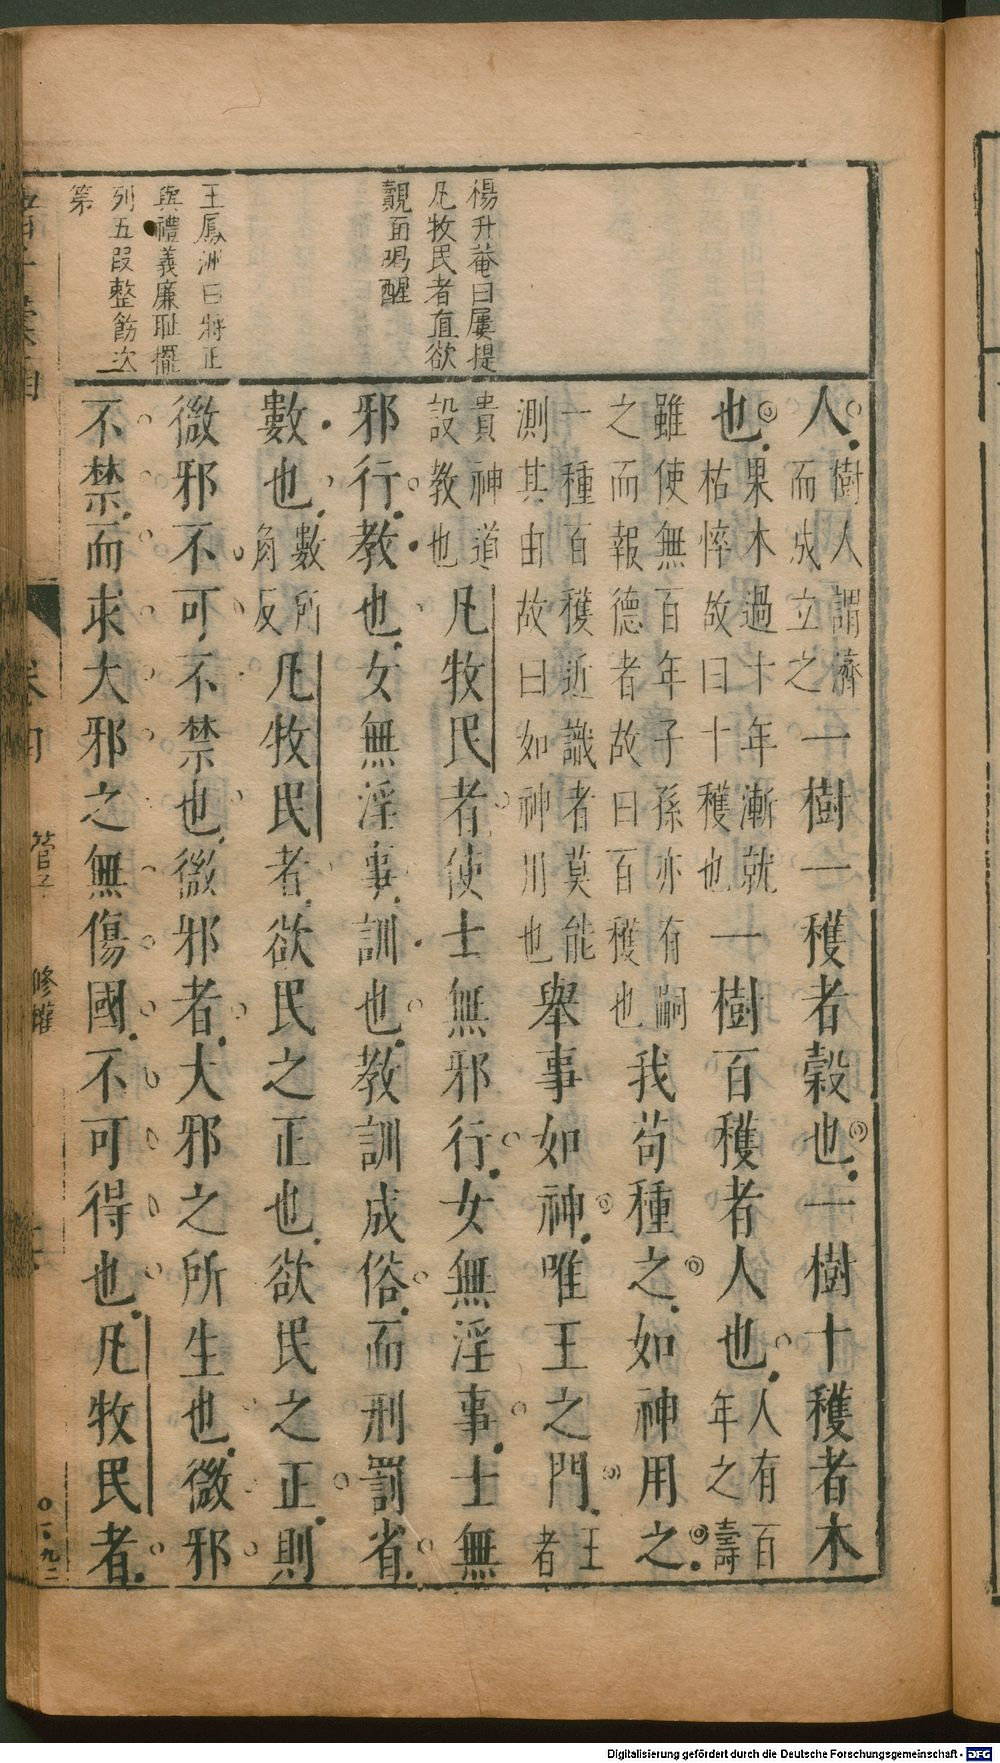 楊升菴曰屢提
凡牧民者直欲
覿面喝醒
王鳳洲曰將正
與禮義廉恥擺
列五段整飭次
第
人樹人謂濟而成立之一樹一穫者穀也一樹十穫者木
也果木過十年漸就枯悴故曰十穫也一樹百穫者人也人有百年之壽
雖使無百年子孫亦有嗣之而報德者故曰百穫也我苟種之如神用之
一種百穫近識者莫能測其由故曰如神用也舉事如神唯王之門王者
貴神道設教也凡牧民者使士無邪行女無淫事士無
邪行教也女無淫事訓也教訓成俗而刑罰省
數也數所角反凡牧民者欲民之正也欲民之正則
微邪不可不禁也微邪者大邪之所生也微邪
不禁而求大邪之無傷國不可得也凡牧民者
管子 修權
Digitalisierung gefördert durch die Deutsche Forschungsgemeinschaft - DFG